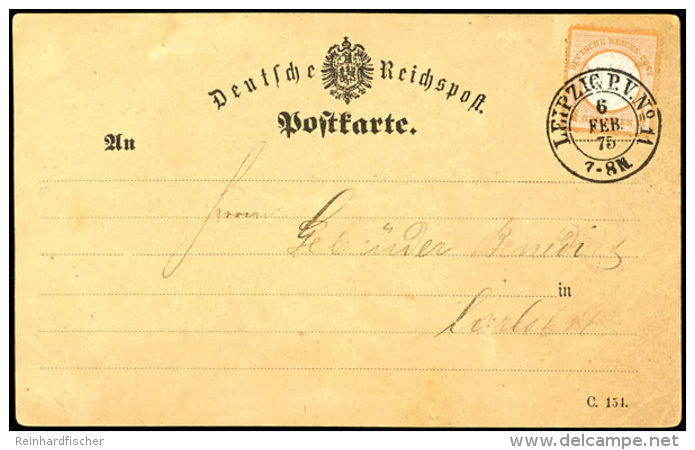 Deutsche Reichspost.
Postkarte.
DEUTSCHE REICHS-POST
LEIPZIG P. V. No 11
6
FEB.
75
7-8N
An
Herrn
Gebrüder Benedict
in
C. 154.
Reinhardfischer
delcampe.net